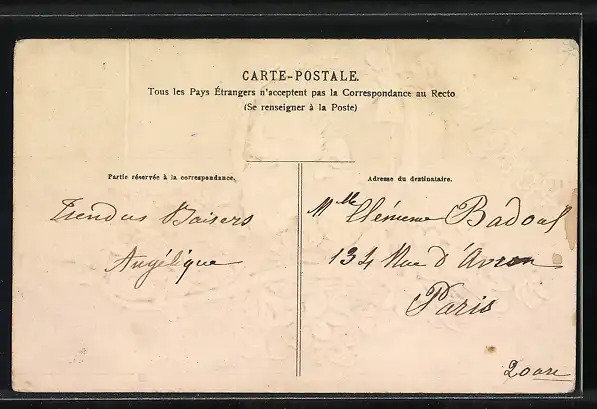 CARTE-POSTALE.
Tous les Pays Étrangers n'acceptent pas la Correspondance au Recto
(Se renseigner à la Poste)
Partie réservée à la correspondance.
Adresse du destinataire.
Tendus Baisers
Angélique
Mlle Clémence Badouf
134 Rue d'Avron
Paris
20 arr